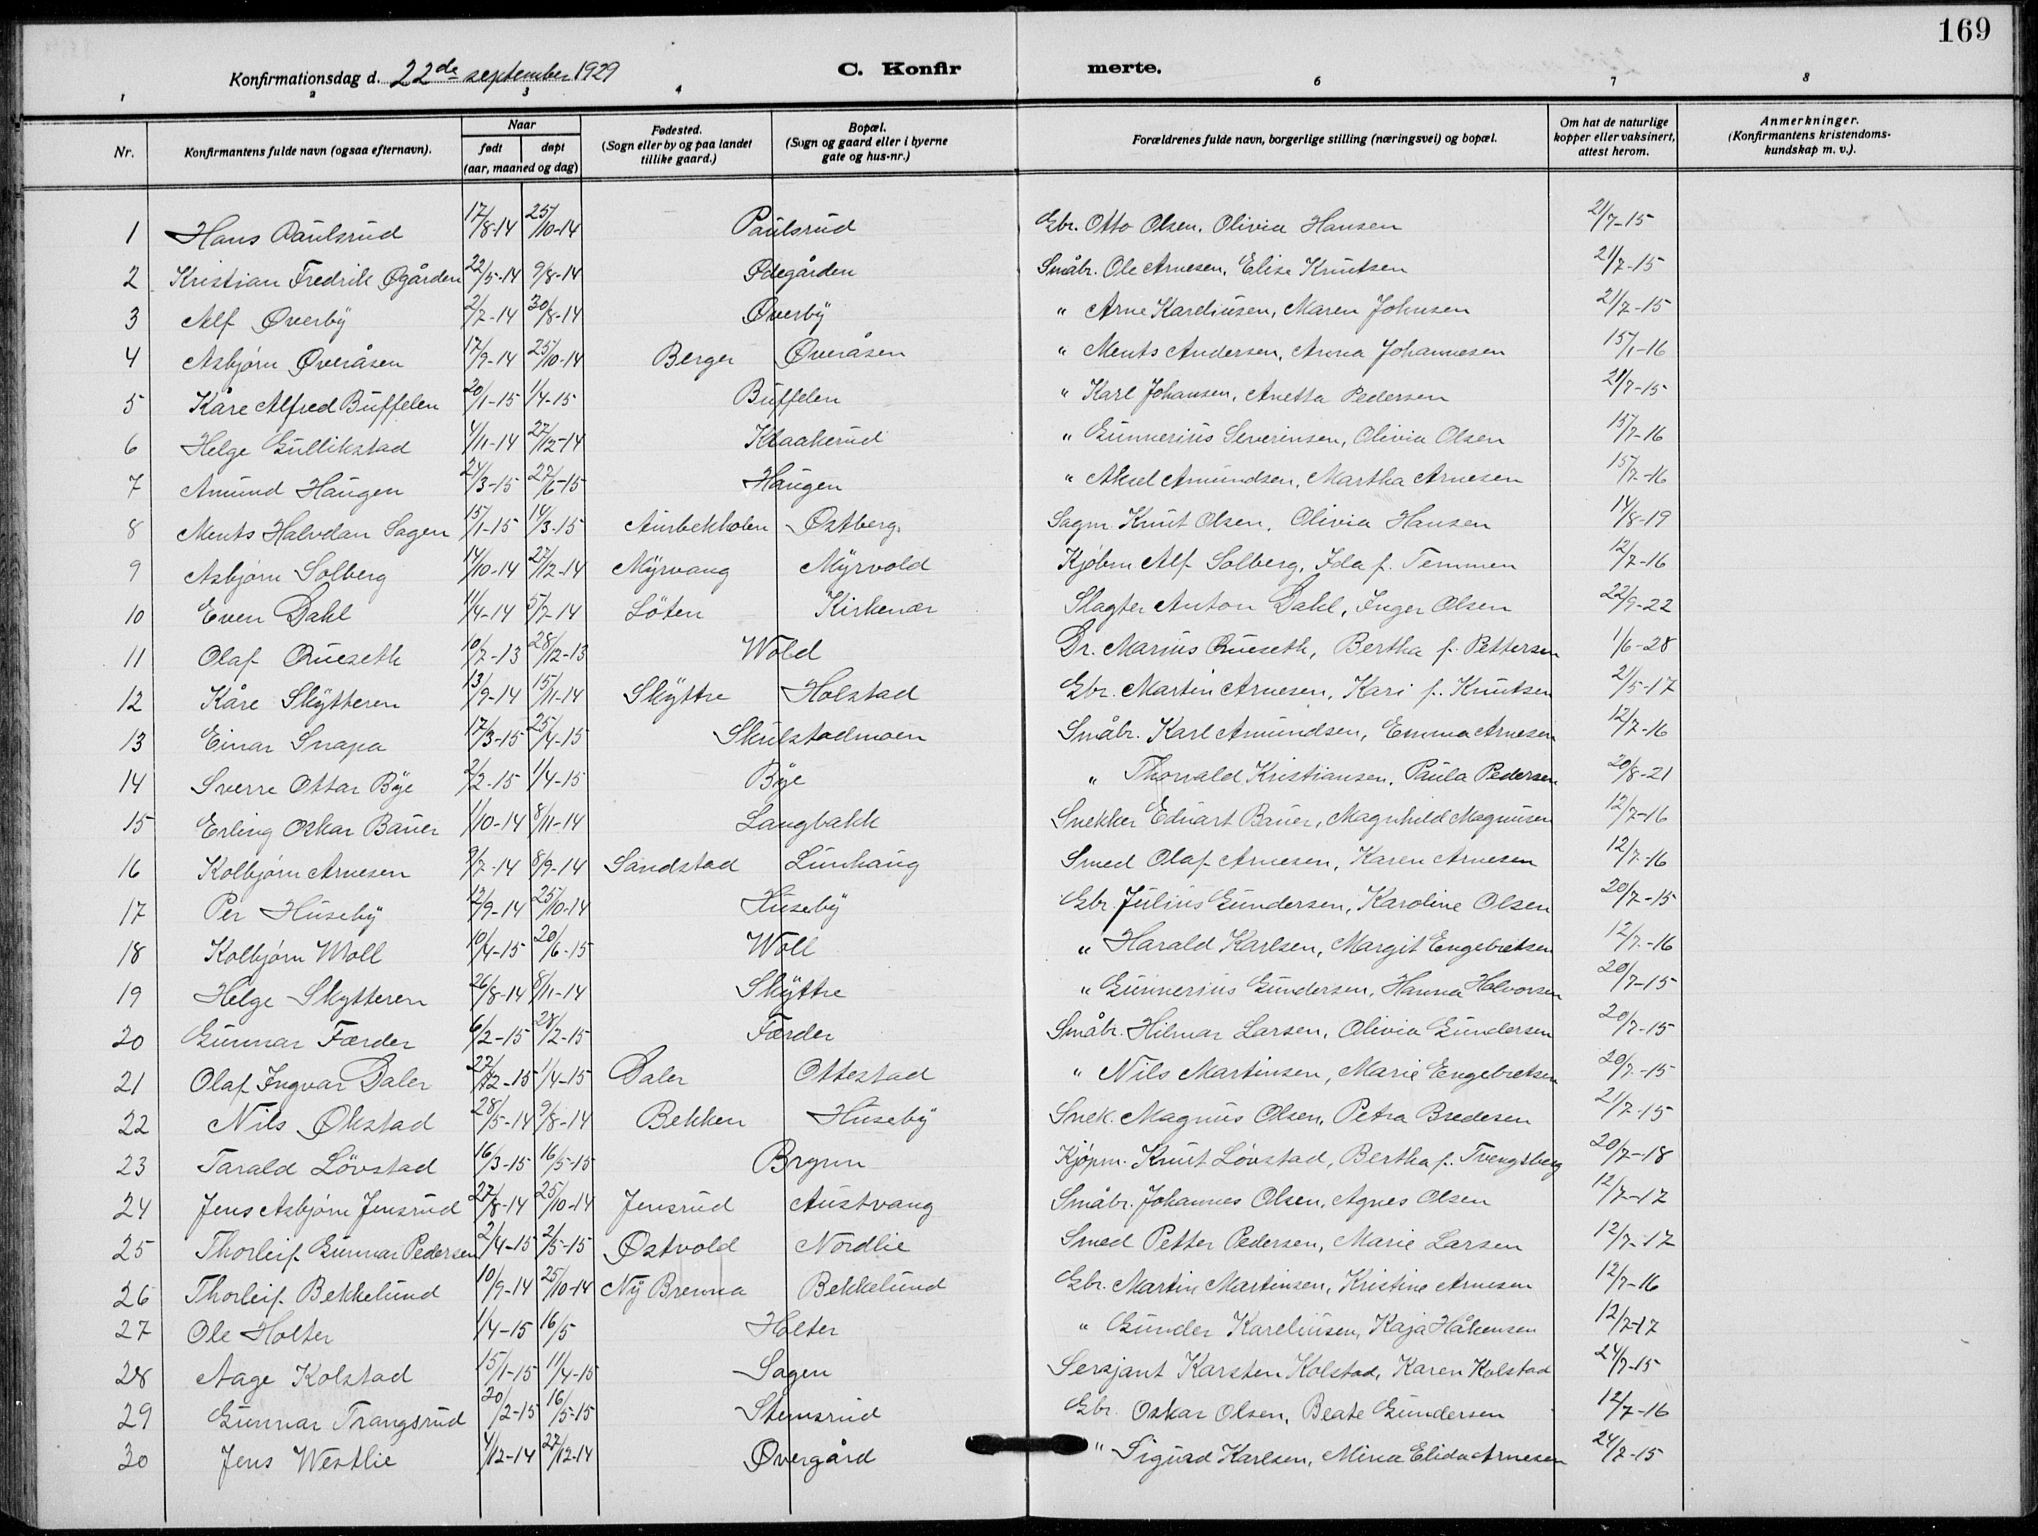 169
Konfirmationsdag d. 22de september 1929 C. Konfirmerte.
1 2 3 4 6 7 8
Nr. Konfirmantens fulde navn (ogsaa efternavn). Naar født døpt (aar, maaned og dag) Fødested. (Sogn eller by og paa landet tillike gaard.) Bopæl. (Sogn og gaard eller i byerne gate og hus-nr.) Forældrenes fulde navn, borgerlige stilling (næringsvei) og bopæl. Om hat de naturlige kopper eller vaksinert, attest herom. Anmerkninger. (Konfirmantens kristendoms-kundskap m. v.).
1 Hans Paulsrud 17/8-14 25/10-14 Paulsrud Gbr. Otto Olsen, Olivia Hansen 21/7-15
2 Kristian Fredrik Øgården 22/5-14 9/8-14 Ødegården Småbr. Ole Arnesen, Elise Knutsen 21/7-15
3 Alf Øverby 2/7-14 30/8-14 Øverby " Arne Kareliusen, Maren Johnsen 21/7-15
4 Asbjørn Øveråsen 17/9-14 25/10-14 Berger Øveråsen " Ments Andersen, Anna Johannesen 15/1-16
5 Kåre Alfred Buffelen 20/1-15 1/4-15 Buffelen " Karl Johansen, Anetta Pedersen 21/7-15
6 Helge Gullikstad 4/11-14 27/12-14 Klaakerud " Gunnerius Severinsen, Olivia Olsen 15/7-16
7 Amund Haugen 24/3-15 27/6-15 Haugen " Aksel Amundsen, Martha Arnesen 15/7-16
8 Ments Halvdan Sagen 15/1-15 14/3-15 Aurbekholen Østberg. Sagm. Knut Olsen, Olivia Hansen 14/8-19
9 Asbjørn Solberg 14/10-14 27/12-14 Myrvang Myrvold Kjøbm Alf Solberg, Ida f. Temmen 12/7-16
10 Even Dahl 11/4-14 5/7-14 Löten Kirkenær Slagter Anton Dahl, Inger Olsen 22/9-22
11 Olaf Queseth 10/7-13 28/12-13 Wold Dr. Marius Queseth, Bertha f. Pettersen 1/6-28
12 Kåre Skytteren 13/9-14 15/11-14 Skyttre Holstad Gbr. Martin Arnesen, Kari f. Knutsen 21/5-17
13 Einar Snapa 17/3-15 25/4-15 Skulstadmoen Småbr. Karl Amundsen, Emma Arnesen 12/7-16
14 Sverre Ottar Bye 2/2-15 1/4-15 Bye " Thorvald Kristiansen, Paula Pedersen 20/8-21
15 Erling Oskar Bauer 1/10-14 8/11-14 Langbakk Snekker Eduart Bauer, Magnhild Magnusen 12/7-16
16 Kolbjørn Arnesen 9/7-14 8/9-14 Sandstad Lunhaug Smed Olaf Arnesen, Karen Arnesen 12/7-16
17 Per Huseby 12/9-14 25/10-14 Huseby Gbr. Julius Gundersen, Karoline Olsen 20/7-15
18 Kolbjørn Woll 10/4-15 20/6-15 Woll " Harald Karlsen, Margit Engebretsen 12/7-16
19 Helge Skytteren 26/8-14 8/11-14 Skyttre " Gunnerius Gundersen, Hanna Halvorsen 20/7-15
20 Gunnar Færder 6/2-15 28/2-15 Færder Småbr. Hilmar Larsen, Olivia Gundersen 20/7-15
21 Olaf Ingvar Daler 22/12-15 1/4-15 Daler Ottestad " Nils Martinsen, Marie Engebretsen 20/7-15
22 Nils Økstad 28/5-14 9/8-14 Bekken Huseby Snek. Magnus Olsen, Petra Bredesen 21/7-15
23 Tarald Lövstad 16/3-15 16/5-15 Brynn Kjöpm. Knut Lövstad, Bertha f. Tvengsberg 20/7-18
24 Jens Asbjørn Jensrud 27/8-14 25/10-14 Jensrud Austvang Småbr. Johannes Olsen, Agnes Olsen 12/7-17
25 Thorleif Gunnar Pedersen 2/4-15 2/5-15 Østvold Nordlie Smed Petter Pedersen, Marie Larsen 12/7-17
26 Thorleif Bekkelund 10/9-14 25/10-14 Ny Brenna Bekkelund Gbr. Martin Martinsen, Kristine Arnesen 12/7-16
27 Ole Holter 1/4-15 16/5 Holter " Gunder Kareliusen, Kaja Håkensen 12/7-17
28 Aage Kolstad 15/1-15 11/4-15 Sagen Sersjant Karsten Kolstad, Karen Kolstad 24/7-15
29 Gunnar Trangsrud 20/2-15 16/5-15 Stemsrud Gbr. Oskar Olsen, Beate Gundersen 12/7-16
30 Jens Westlie 4/12-14 27/12-14 Øvergård " Sigurd Karlsen, Mina Elida Arnesen 24/7-15